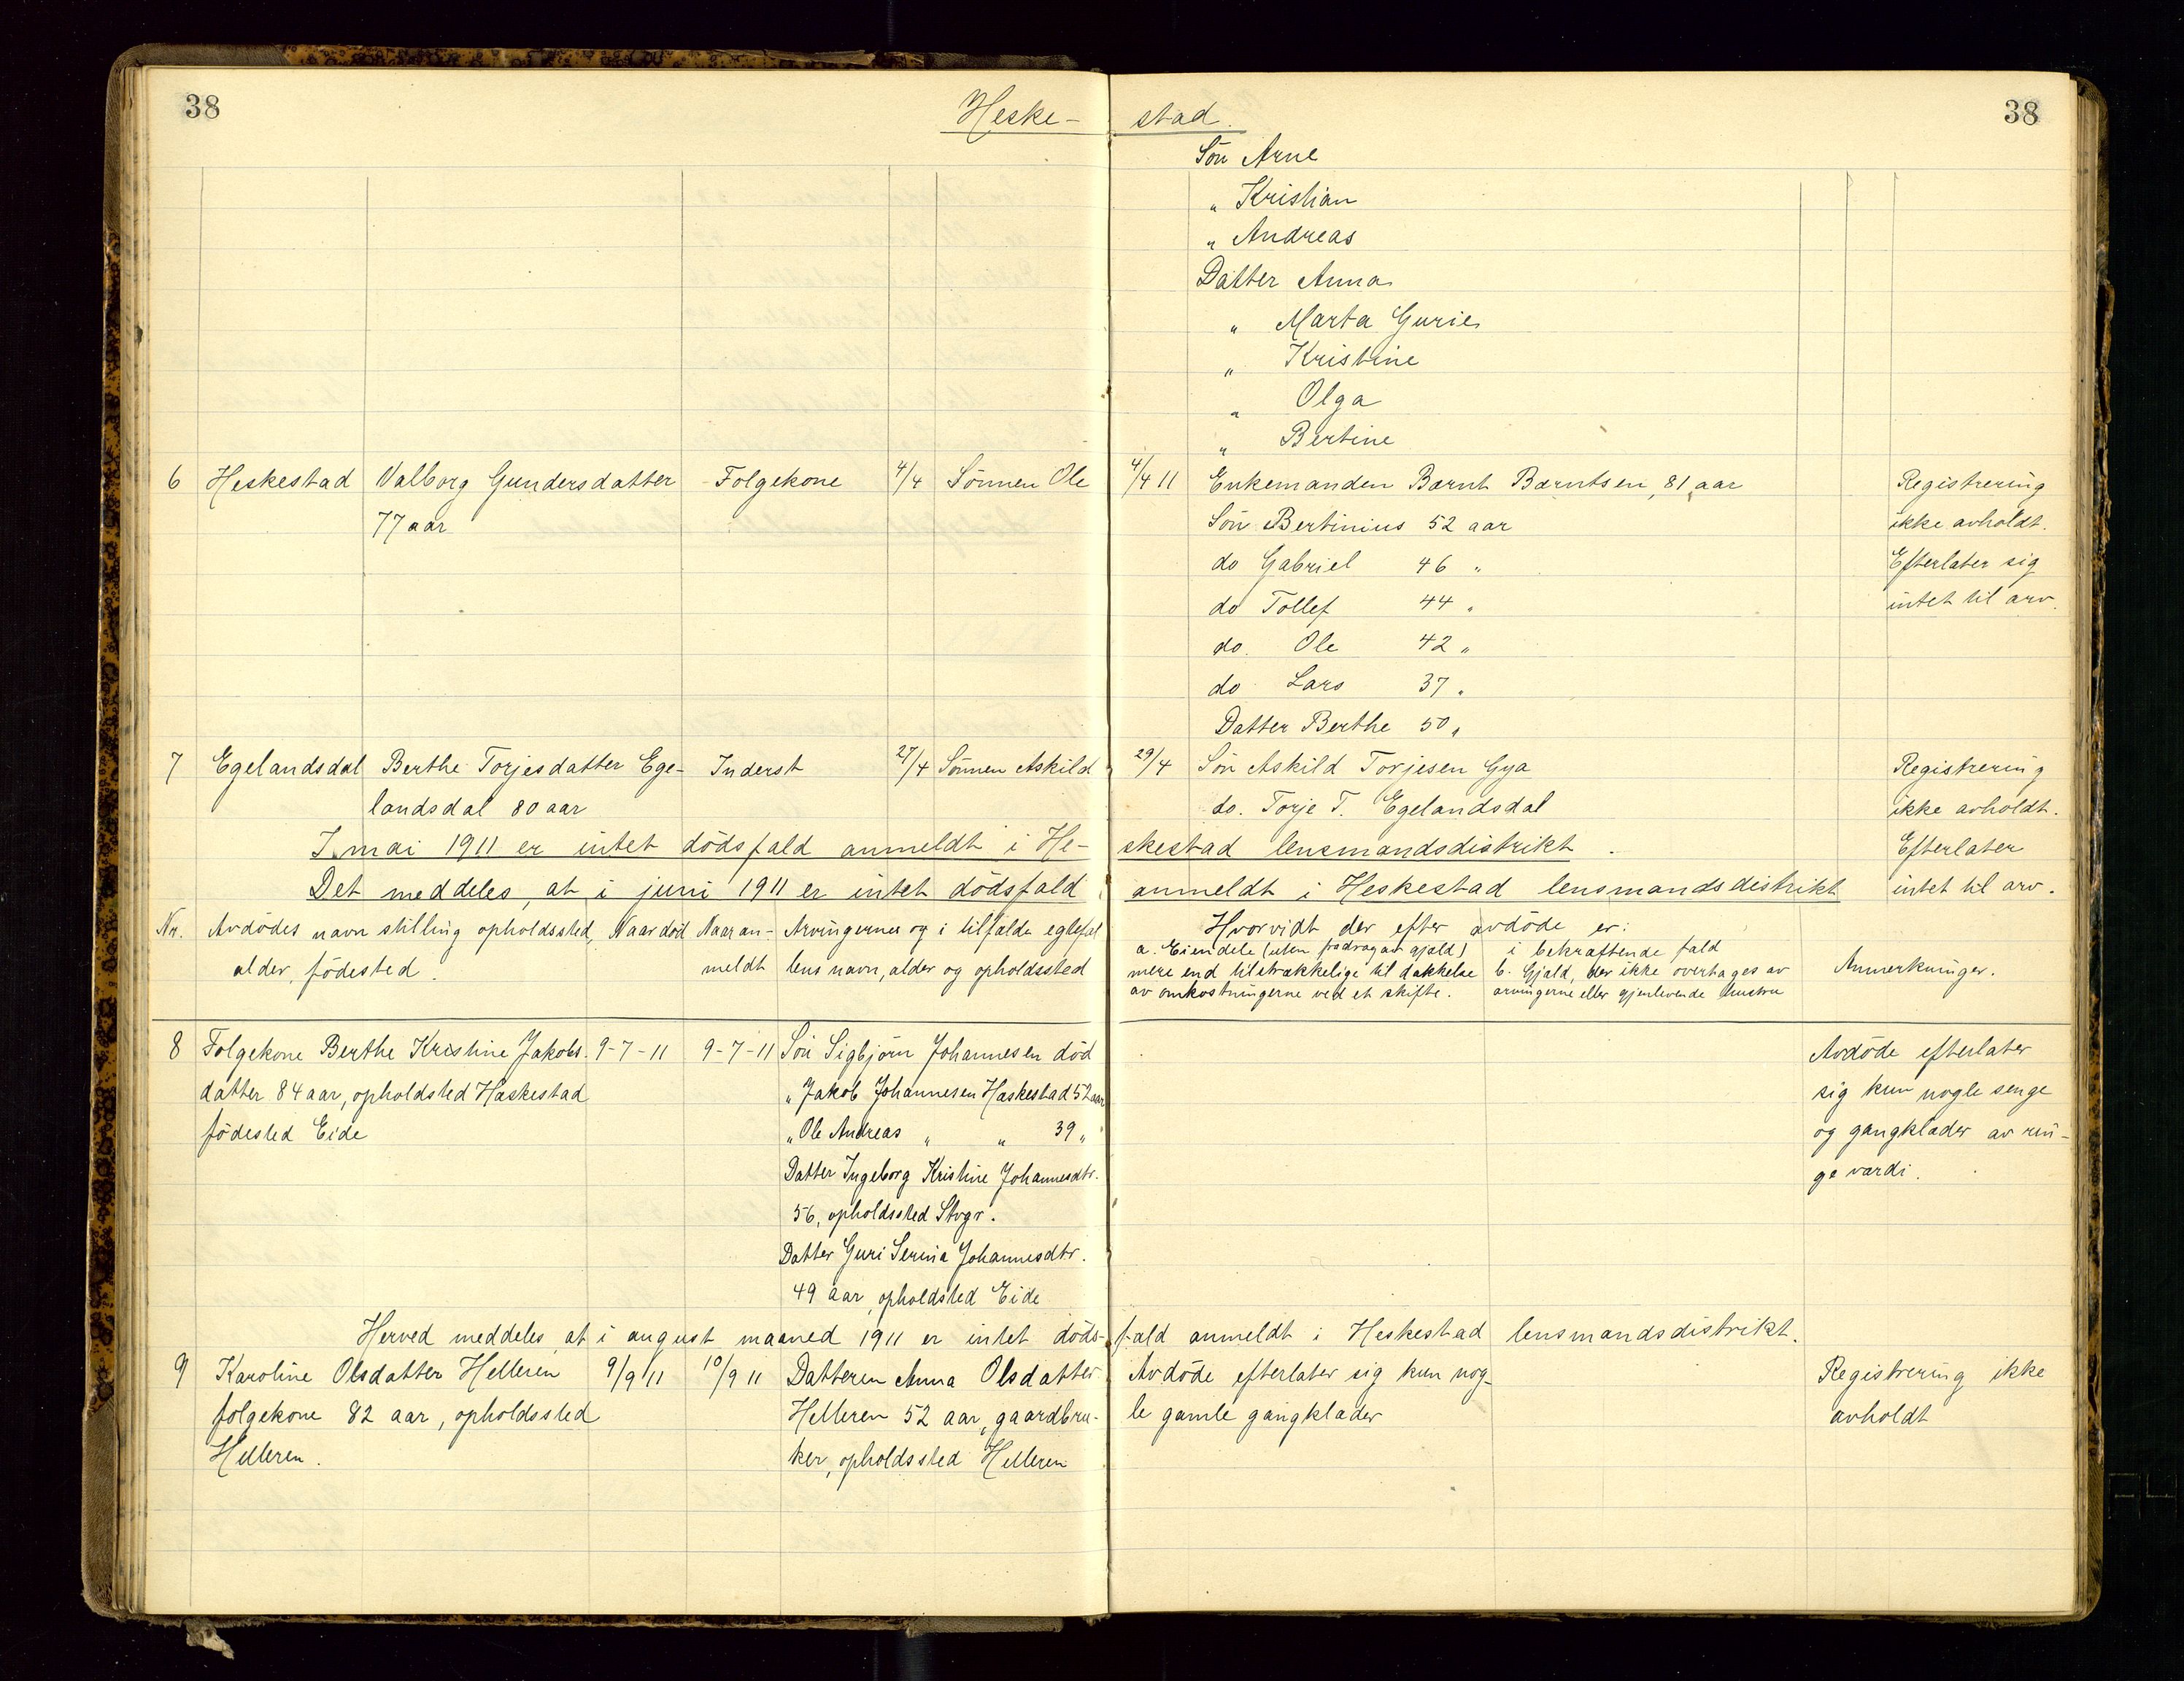 38
Heske- stad.
38
Sön Arne
" Kristian
" Andreas
Datter Anna
" Marta Gurie
" Kristine
" Olga
" Bertine
6 Heskestad Valborg Gundersdatter Folgekone 4/4 Sönnen Ole 4/4 11 Enkemanden Bærnt Bærntsen, 81 aar Registrering
77 aar Sön Bertinius 52 aar ikke avholdt.
do Gabriel 46 " Efterlater sig
do Tollef 44 " intet til arv.
do. Ole 42 "
do Lars 37 "
Datter Berthe 50 "
7 Egelandsdal Berthe Torjesdatter Ege- Inderst 27/4 Sönnen Askild 29/4 Sön Askild Torjesen Gya Registrering
landsdal 80 aar do. Torje T. Egelandsdal ikke avholdt.
I mai 1911 er intet dödsfald anmeldt i He- skestad lensmandsdistrikt. Efterlater
Det meddeles, at i juni 1911 er intet dödsfald anmeldt i Heskestad lensmandsdistrikt intet til arv.
Nr. Avdödes navn stilling opholdssted, Naar död Naar an- Arvingernes og i tilfælde egtefæl Hvorvidt der efter avdöde er:
alder, födested. meldt lens navn, alder og opholdssted
a. Eiendele (uten fradrag av gjæld)
mere end tilstrækkelige til dækkelse
av omkostningerne ved et skifte.
i bekræftende fald
b. Gjæld, der ikke overtages av
arvingerne eller gjenlevende hustru
Anmerkninger.
8 Folgekone Berthe Kristine Jakobs- 9-7-11 9-7-11 Sön Sigbjörn Johannesen död Avdöde efterlater
datter 84 aar, opholdsted Hæskestad " Jakob Johannesen Hæskestad 52 aar sig kun nogle senge
födested Eide " Ole Andreas " " 39 " og gangklæder av rin-
Datter Ingeborg Kristine Johannesdtr. ge værdi.
56, opholdssted Stvgr.
Datter Guri Serina Johannesdtr.
49 aar, opholdsted Eide
Herved meddeles, at i august maaned 1911 er intet döds- fald anmeldt i Heskestad lensmandsdistrikt.
9 Karoline Olsdatter Helleren 9/9 11 10/9 11 Datteren Anna Olsdatter Avdöde efterlater sig kun nog- Registrering ikke
folgekone 82 aar, opholdssted Helleren 52 aar, gaardbru- le gamle gangklæder avholdt
Helleren. ker, opholdssted Helleren